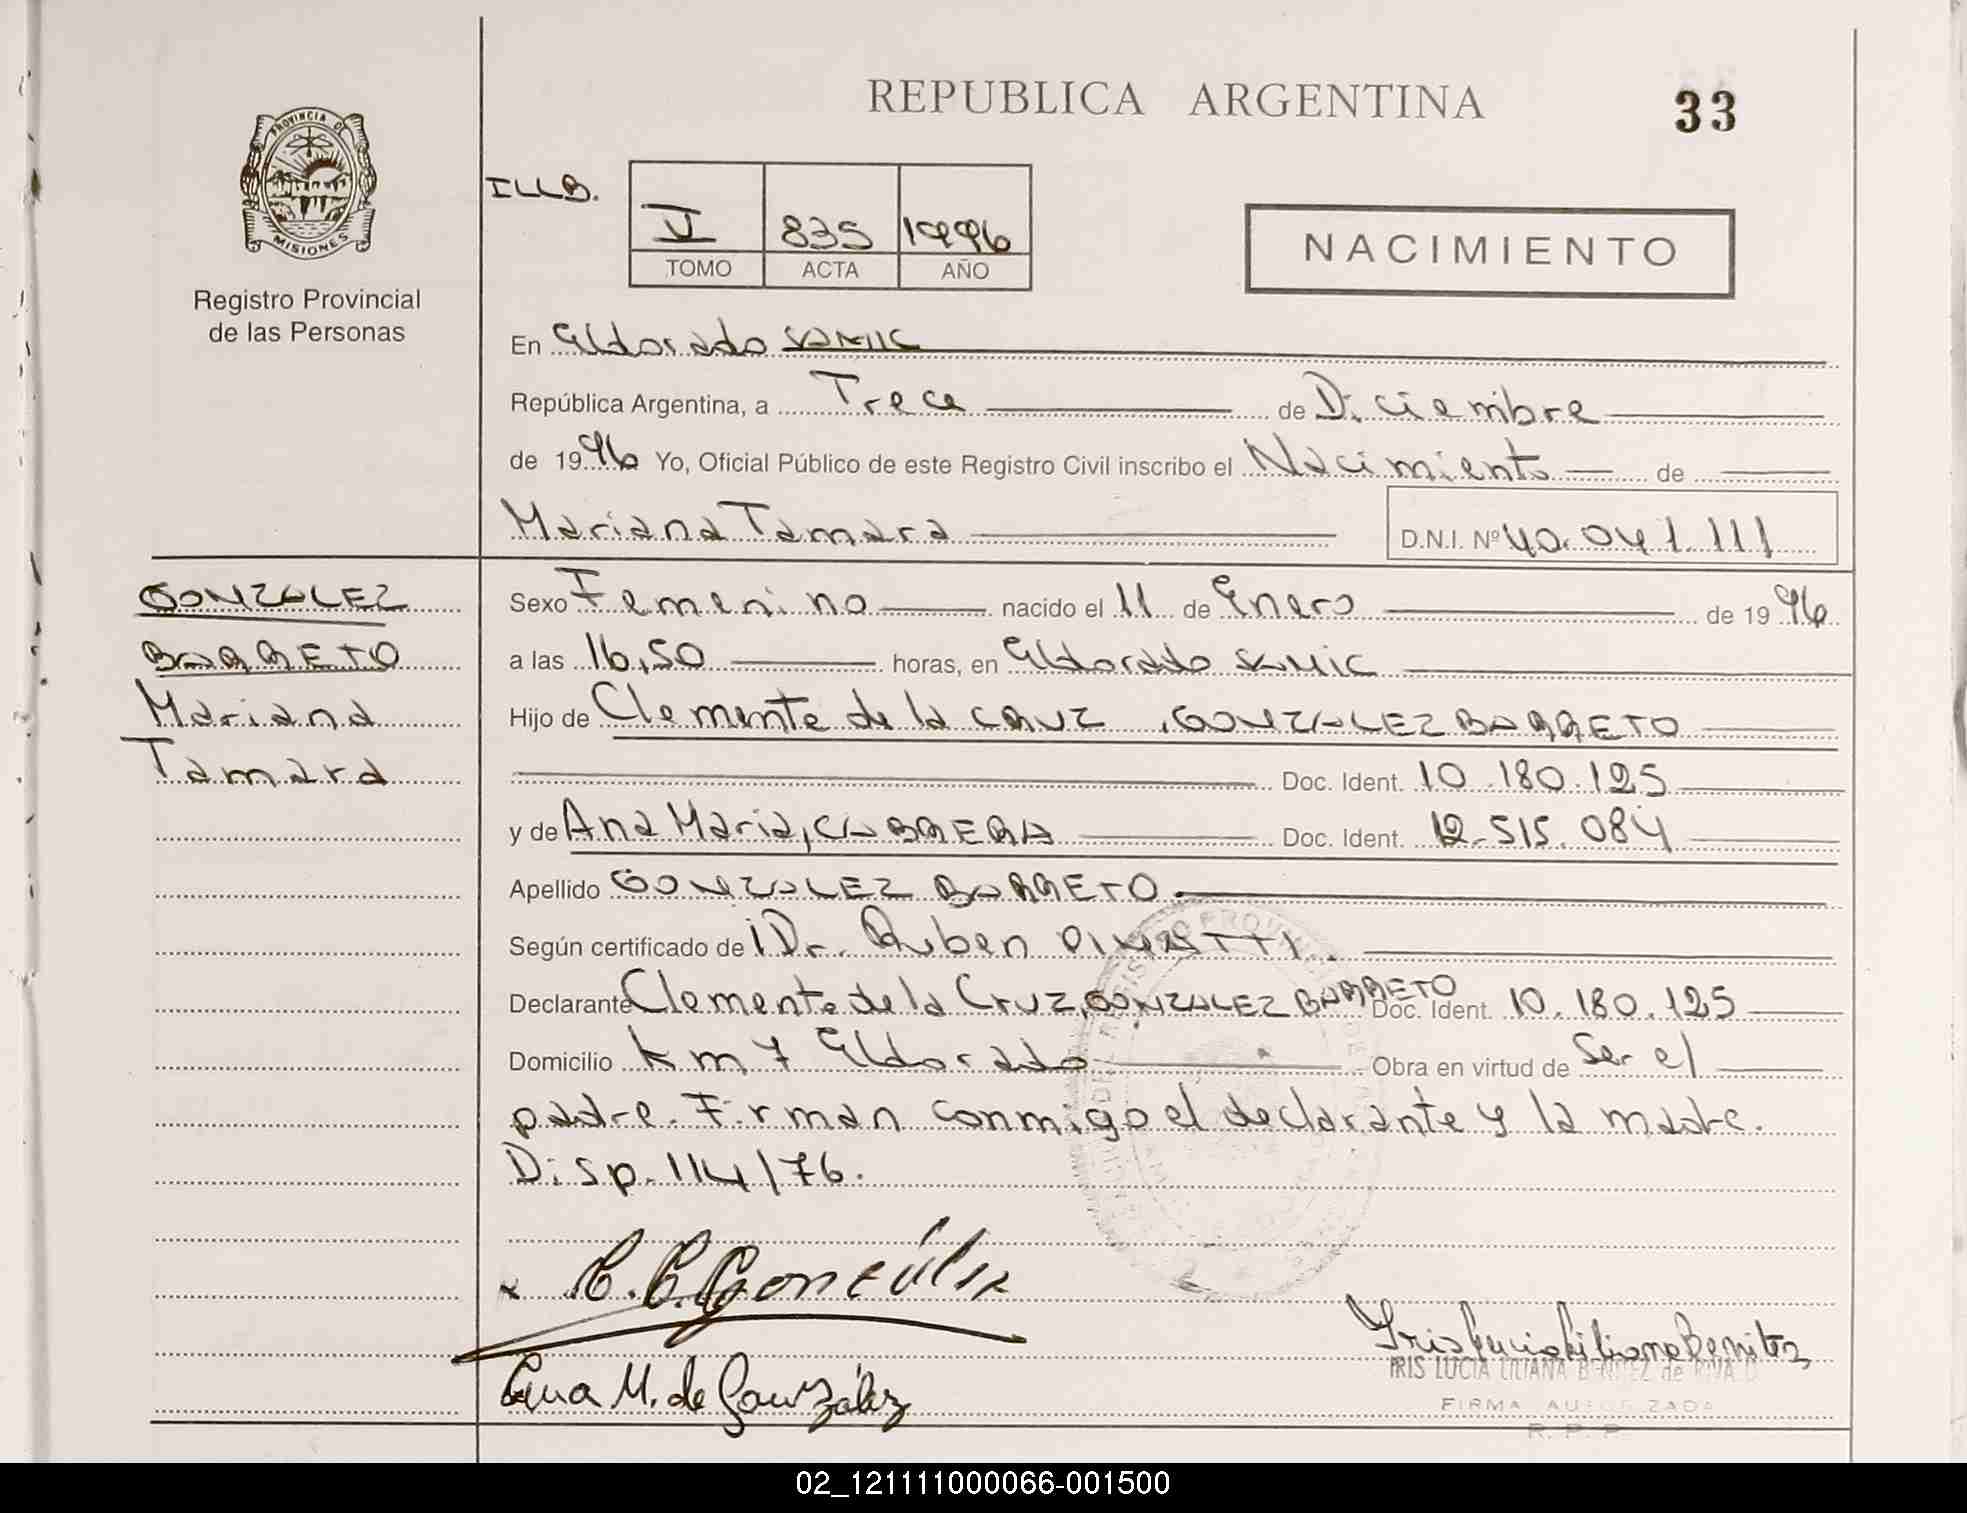 REPUBLICA ARGENTINA
33
PROVINCIA DE
MISIONES
Registro Provincial
de las Personas
ILLB.
V 835 1996
TOMO ACTA AÑO
NACIMIENTO
En Eldorado SAMIC
República Argentina, a Trece de Diciembre
de 1996 Yo, Oficial Público de este Registro Civil inscribo el Nacimiento de
Mariana Tamara D.N.I. Nº 40.041.111
GONZALEZ
BARRETO
Mariana
Tamara
Sexo Femenino nacido el 11 de Enero de 1996
a las 16,50 horas, en Eldorado SAMIC
Hijo de Clemente de la CRUZ, GONZALEZ BARRETO
Doc. Ident. 10.180.125
y de Ana Maria, CABRERA Doc. Ident. 12.515.084
Apellido GONZALEZ BARRETO
Según certificado de Dr. Ruben
Declarante Clemente de la Cruz, GONZALEZ BARRETO Doc. Ident. 10.180.125
Domicilio km 7 Eldorado Obra en virtud de Ser el
padre. Firman conmigo el declarante y la madre.
Disp. 114/76.
x C. C. González
Ana M. de González
Iris Lucia Liliana Benitez
IRIS LUCIA LILIANA BENITEZ de
FIRMA AUTORIZADA
R. P. P.
02_121111000066-001500